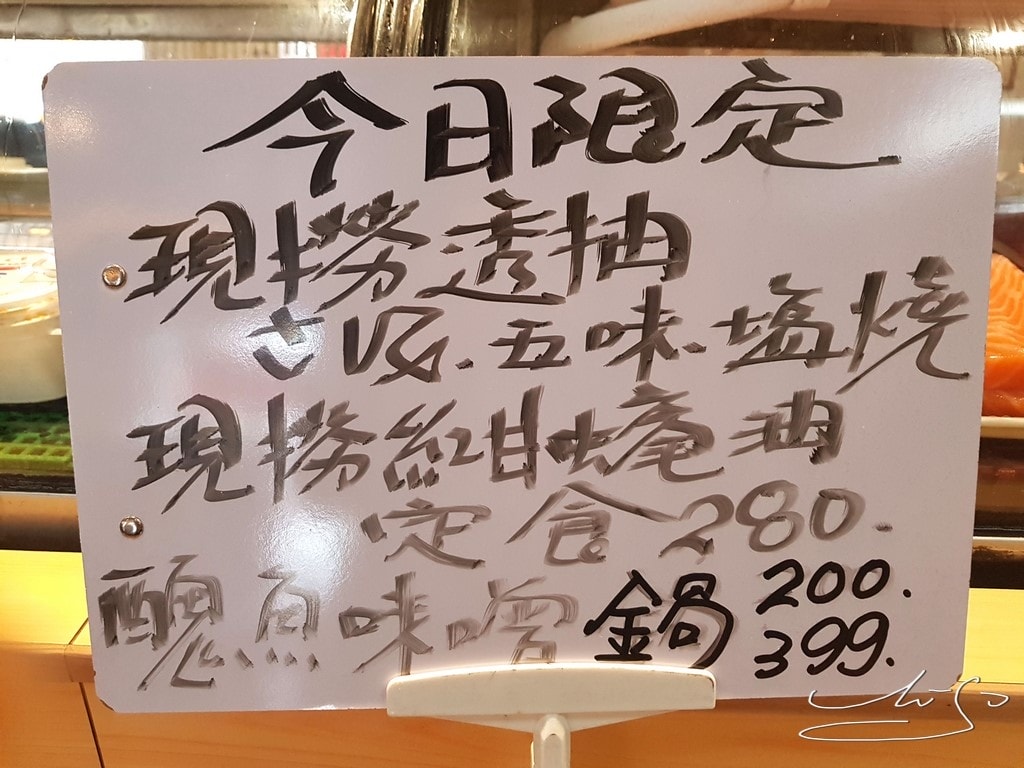 今日限定
現撈透抽
五味.塩燒
現撈紅甘
定食280.
魚味噌鍋 200.
399.